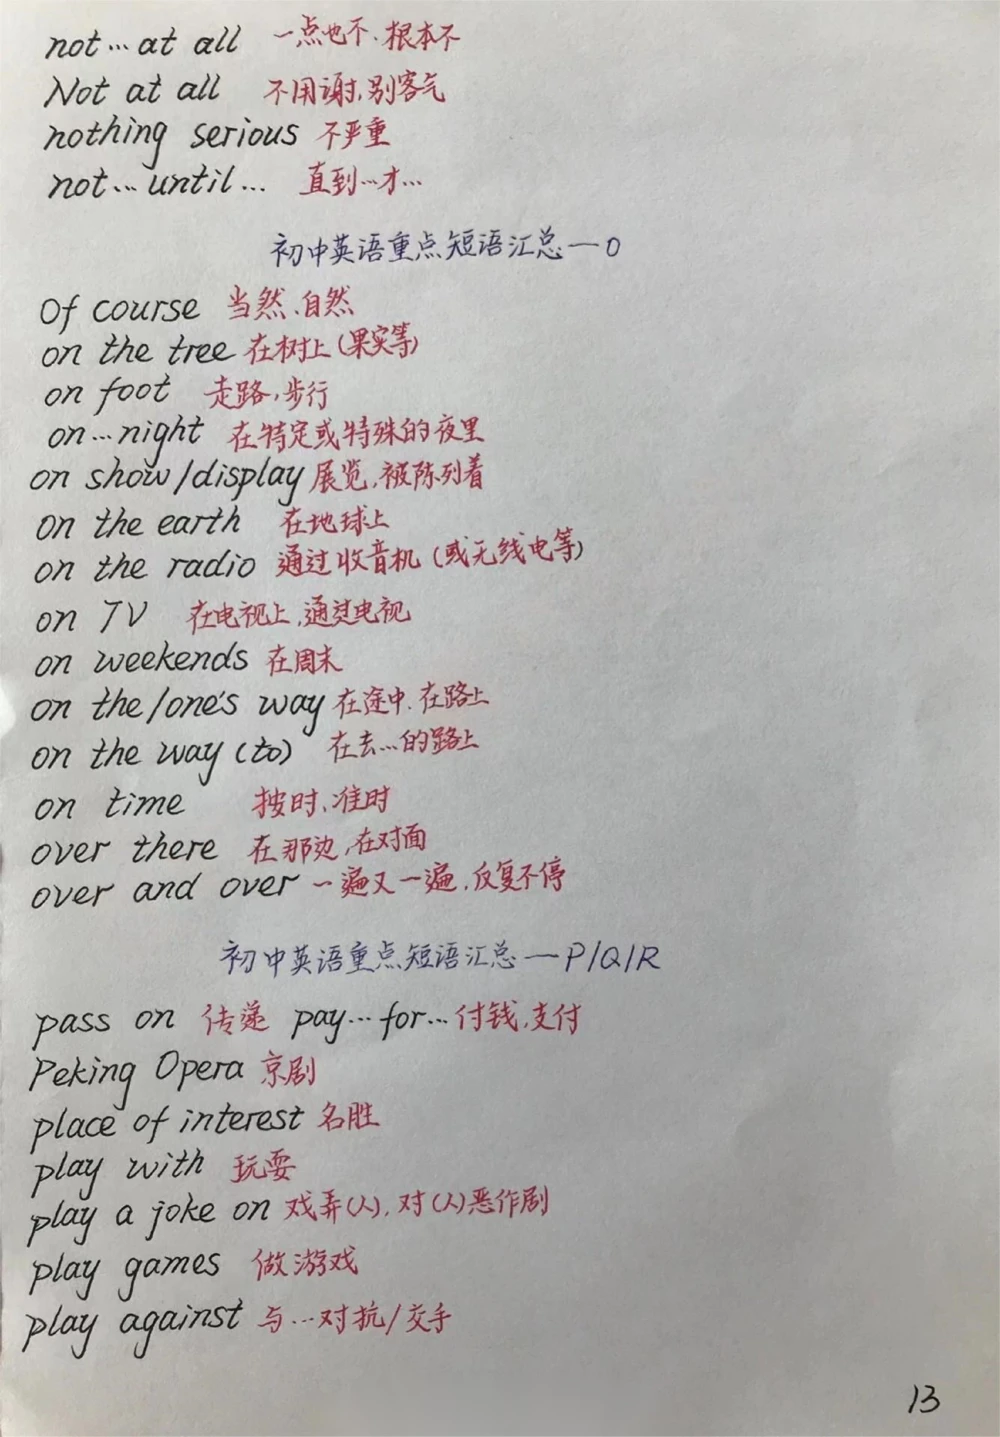 not…at all 一点也不、根本不
Not at all 不用谢,别客气
nothing serious 不严重
not…until… 直到…才…
初中英语重点短语汇总—O
Of course 当然、自然
on the tree 在树上(果实等)
on foot 走路,步行
on…night 在特定或特殊的夜里
on show/display 展览,被陈列着
on the earth 在地球上
on the radio 通过收音机(或无线电等)
on TV 在电视上,通过电视
on weekends 在周末
on the/one's way 在途中、在路上
on the way (to) 在去…的路上
on time 按时、准时
over there 在那边,在对面
over and over 一遍又一遍,反复不停
初中英语重点短语汇总—P/Q/R
pass on 传递 pay…for…付钱,支付
Peking Opera 京剧
place of interest 名胜
play with 玩耍
play a joke on 戏弄(人),对(人)恶作剧
play games 做游戏
play against 与…对抗/交手
13